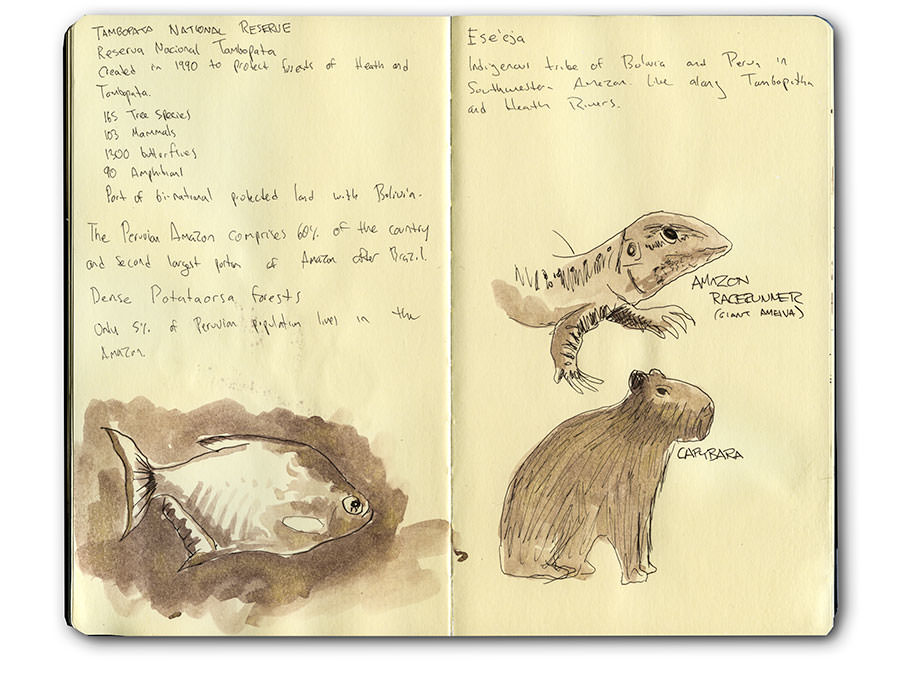 TAMBOPATA NATIONAL RESERVE
Reserva Nacional Tambopata
Created in 1990 to protect forests of Heath and
Tambopata.
165 Tree species
103 Mammals
1300 butterflies
90 Amphibians
Part of bi-national protected land with Bolivia.
The Peruvian Amazon comprises 60% of the country
and second largest portion of Amazon after Brazil.
Dense forests
Only 5% of Peruvian population lives in the
Amazon.
Ese'eja
Indigenous tribe of Bolivia and Peru in
Southwestern Amazon. Live along Tambopatha
and Heath Rivers.
AMAZON
RACERUNNER
(GIANT AMEIVA)
CAPYBARA